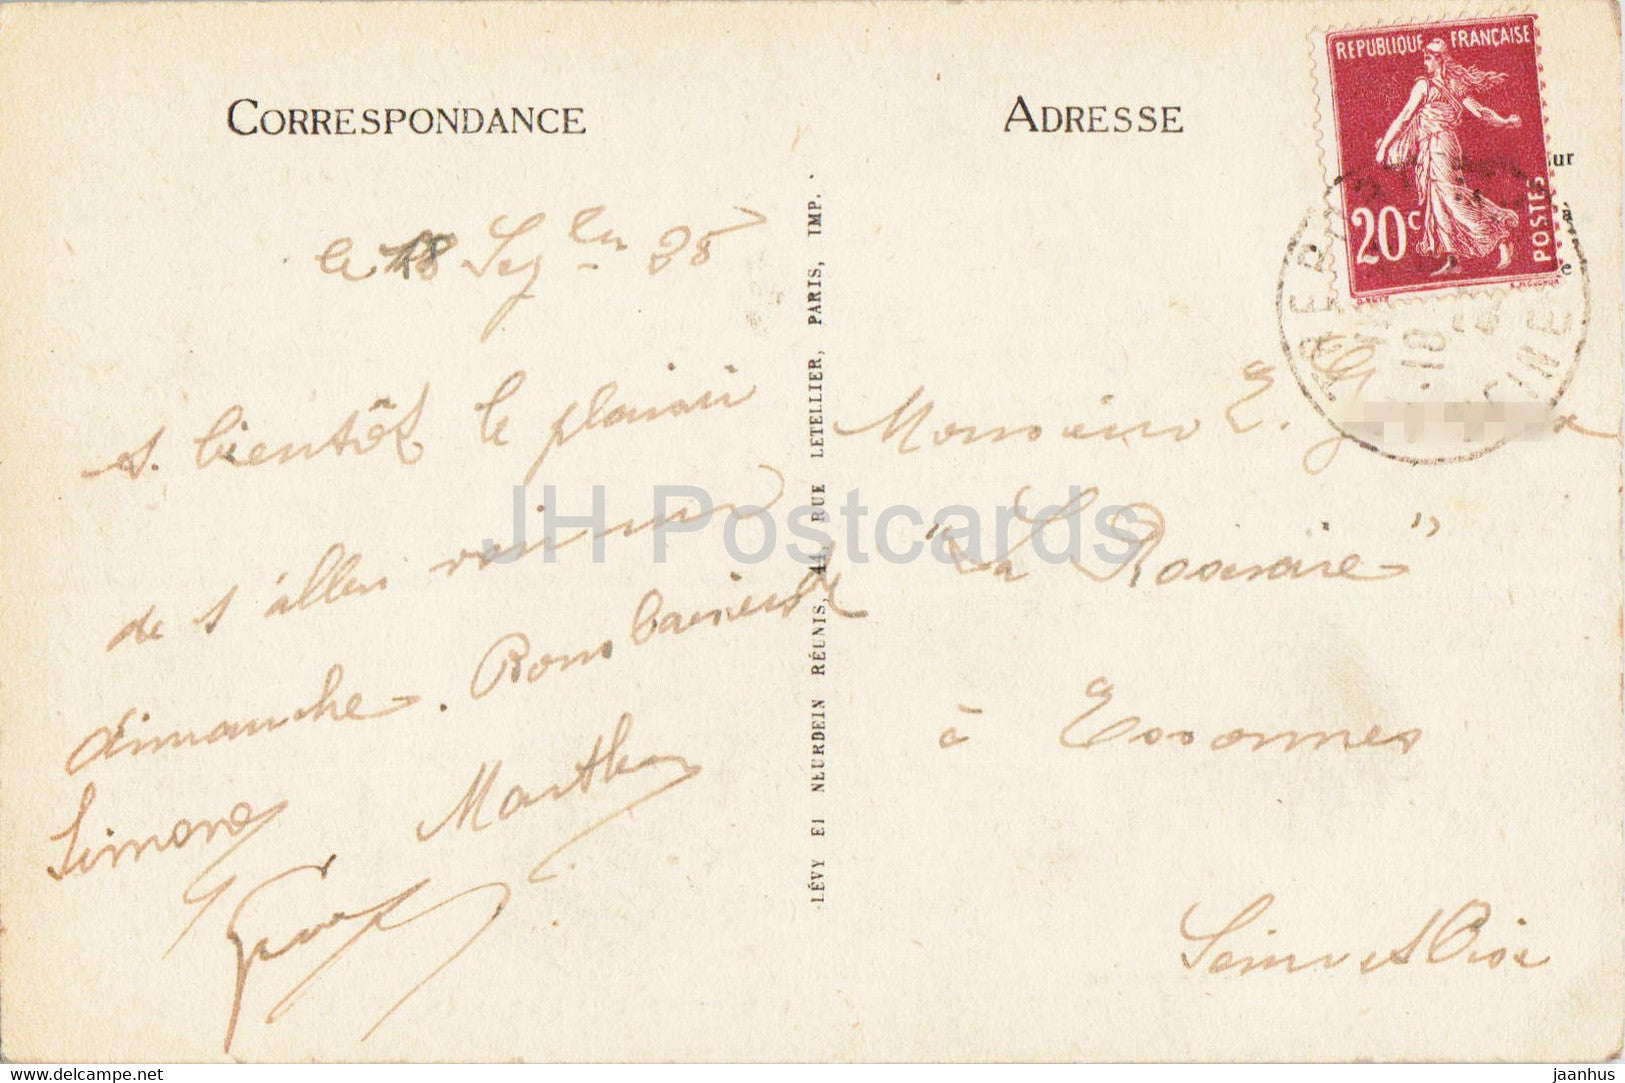 CORRESPONDANCE
le 18 25
à bientôt le plaisir
de s'aller voir
dimanche. Bons baisers
Simone Marthe
LÉVY ET NEURDEIN RÉUNIS, 44, RUE LETELLIER, PARIS, IMP.
ADRESSE
REPUBLIQUE FRANÇAISE
20c
POSTES
ur
Monsieur E. G
"La Roseraie"
à Essonnes
Seine et Oise
JH Postcards
https://www.delcampe.net
jaanhus